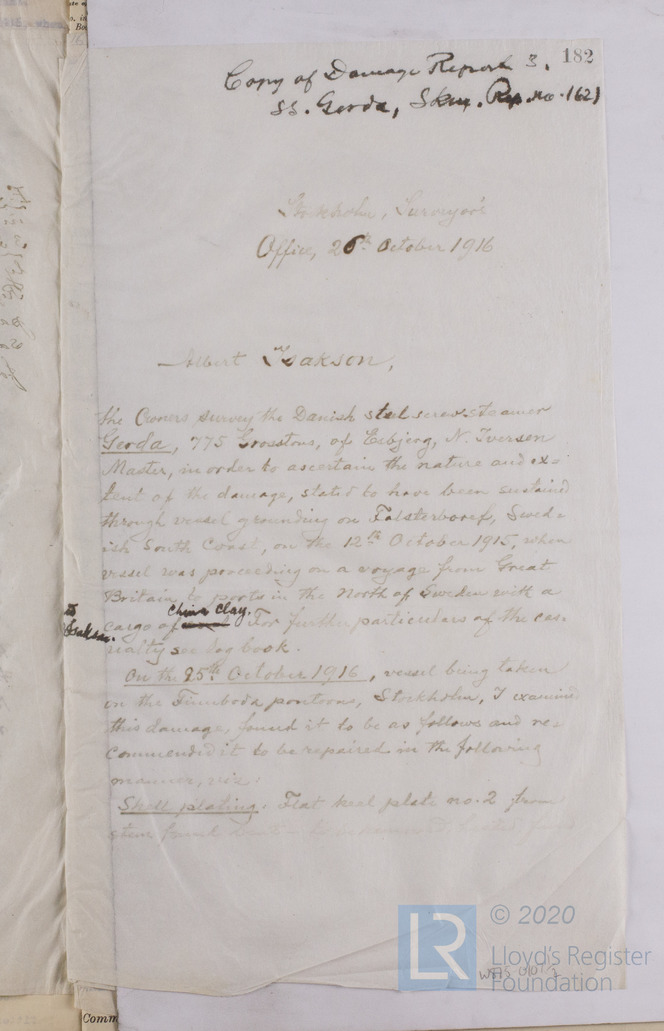 182
Copy of Damage Report 3.
SS. Gerda, Skm. Rep. no. 1621
Stockholm, Surveyor's
Office, 26th October 1916
Albert Isakson,
the Owners survey the Danish steel screw steamer
Gerda, 775 Grosstons, of Esbjerg, N. Iversen
Master, in order to ascertain the nature and ex-
tent of the damage, stated to have been sustained
through vessel grounding on Falsterboref, Swed-
ish South Coast, on the 12th October 1915, when
vessel was proceeding on a voyage from Great
Britain to ports in the North of Sweden with a
China Clay.
cargo of For further particulars of the cas-
ualty see log book.
On the 25th October 1916, vessel being taken
on the Finnboda pontoons, Stockholm, I examined
this damage, found it to be as follows and re-
commended it to be repaired in the following
manner, viz:
Shell plating. Flat keel plate no. 2 from
stem
W575 0107 2
Comm
LR
© 2020
Lloyd's Register
Foundation